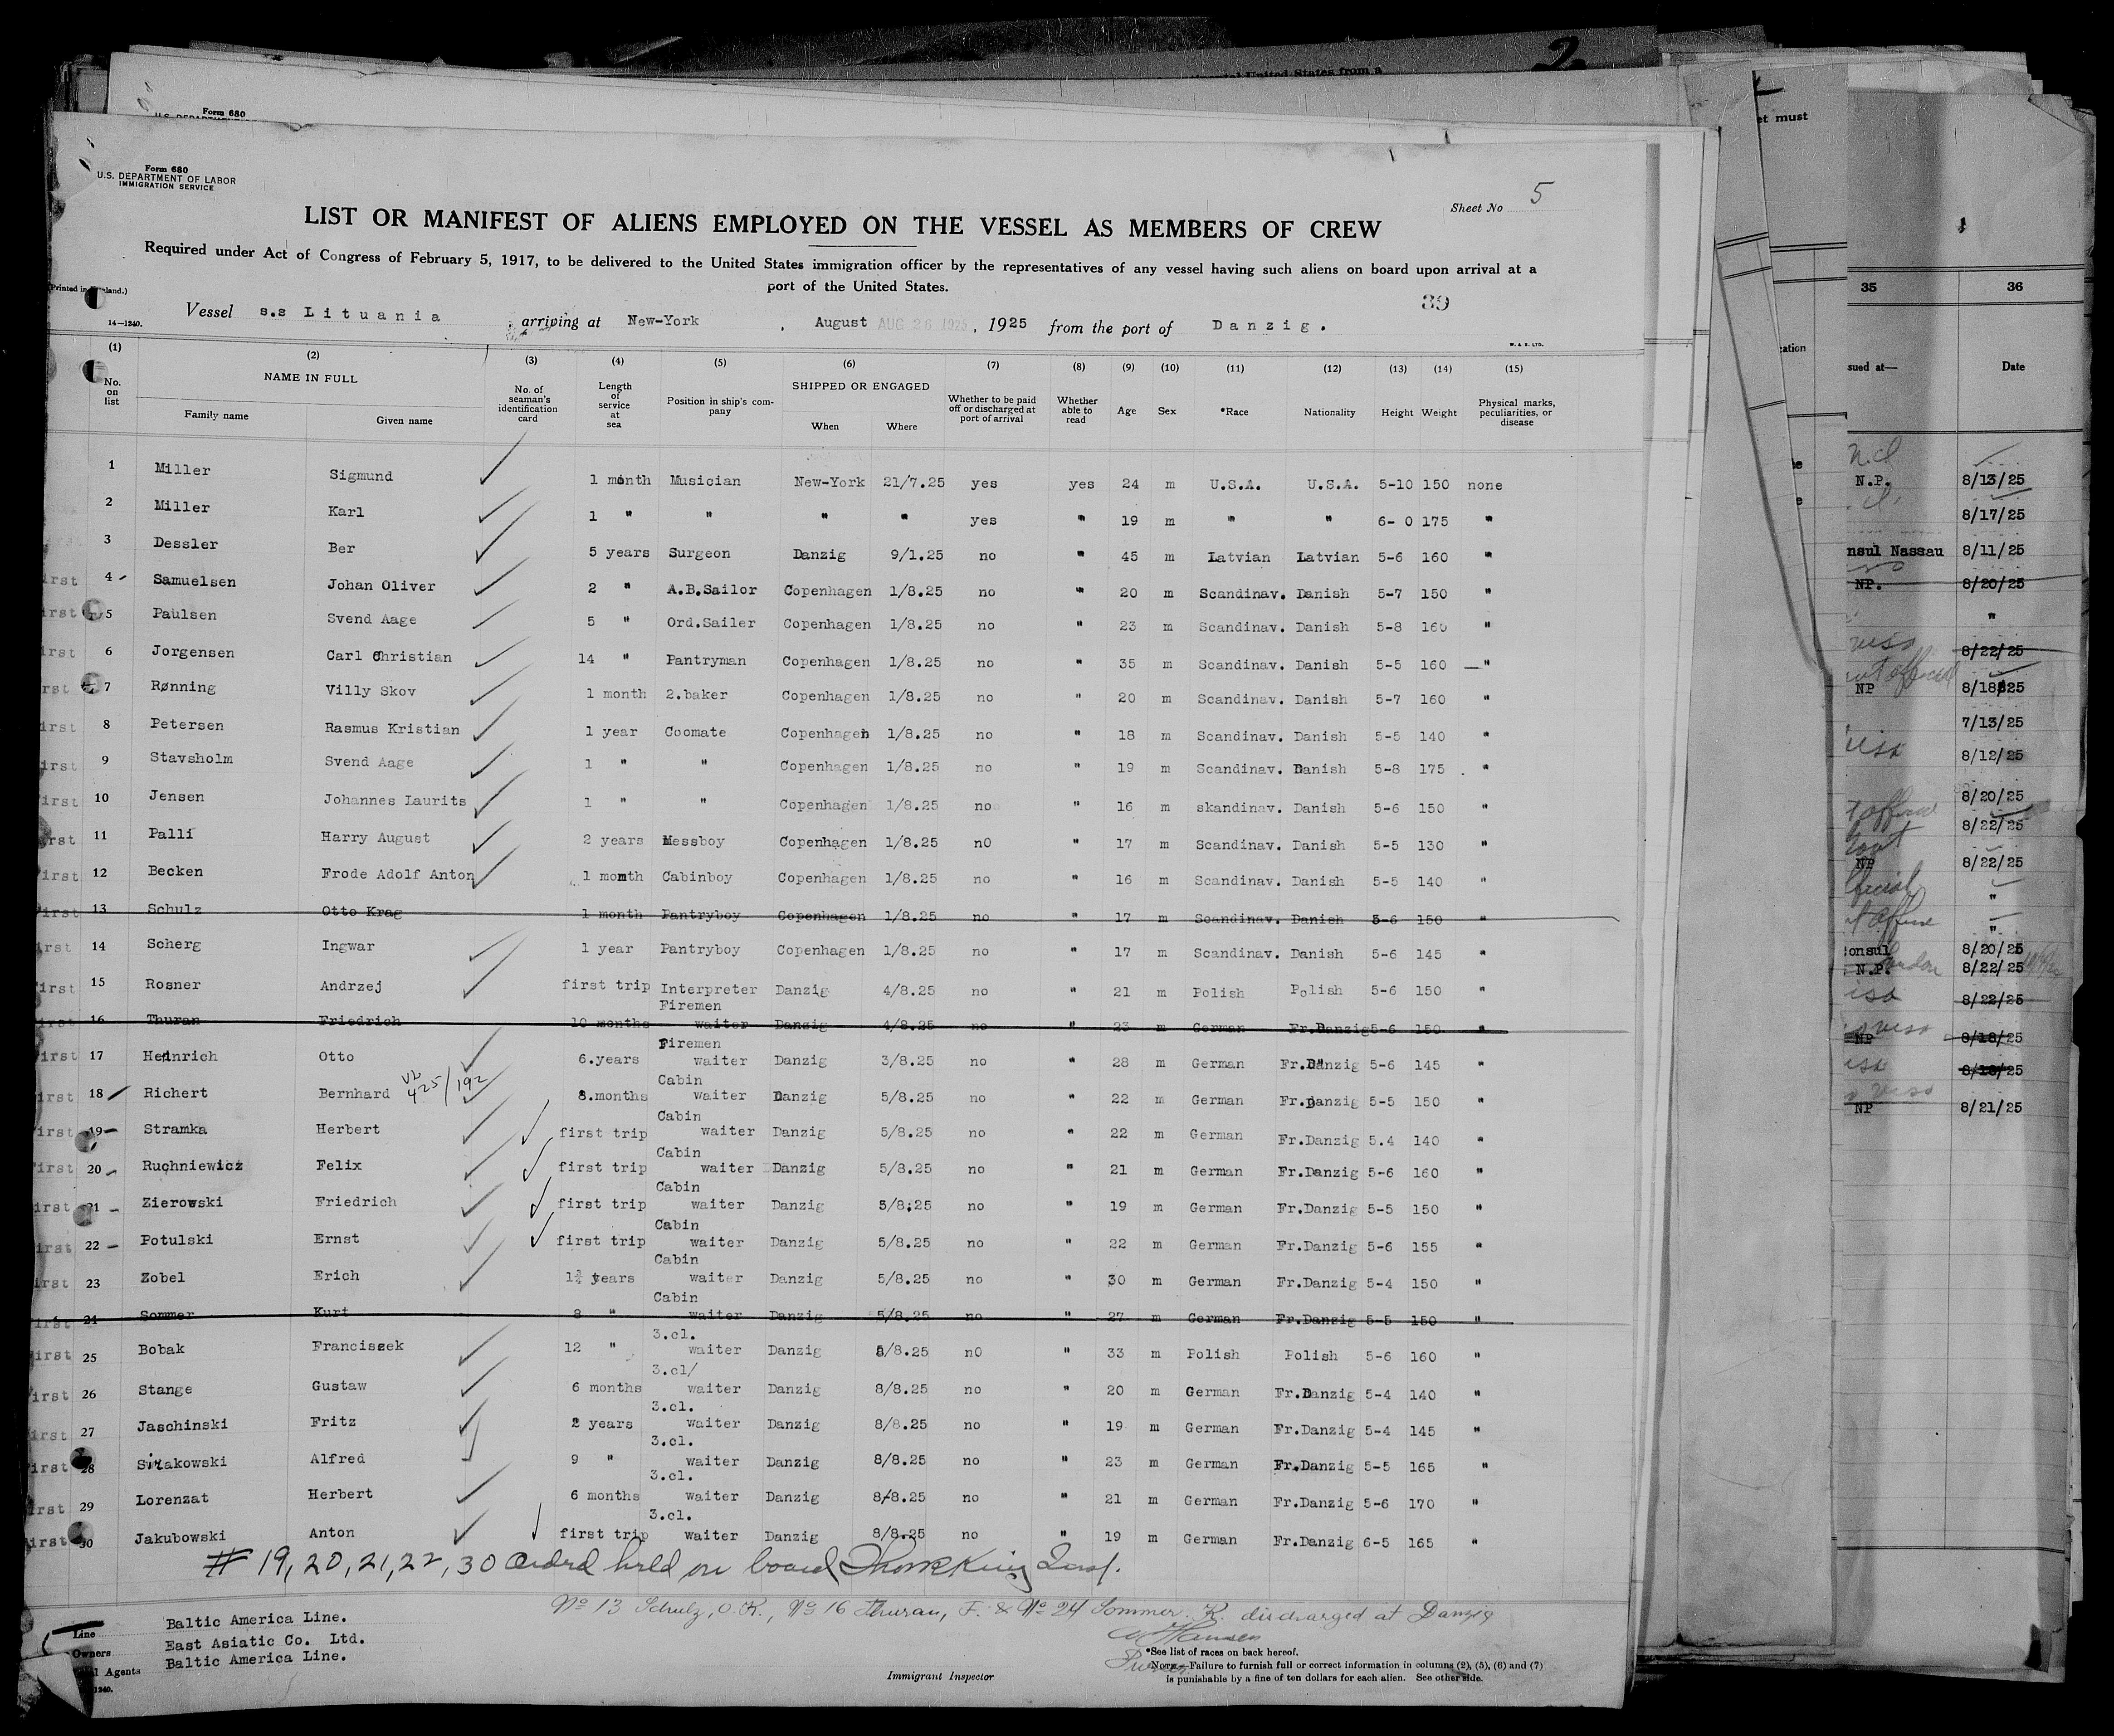 Form 680
Form 680
U.S. DEPARTMENT OF LABOR
IMMIGRATION SERVICE
Sheet No 5
LIST OR MANIFEST OF ALIENS EMPLOYED ON THE VESSEL AS MEMBERS OF CREW
Required under Act of Congress of February 5, 1917, to be delivered to the United States immigration officer by the representatives of any vessel having such aliens on board upon arrival at a
port of the United States.
39
14-1240.
Vessel s.s Lituania , arriving at New-York , August AUG 26 1925 , 1925 from the port of Danzig.
W. & S. LTD.
(1) (2) (3) (4) (5) (6) (7) (8) (9) (10) (11) (12) (13) (14) (15)
No. on list NAME IN FULL Family name Given name No. of seaman's identification card Length of service at sea Position in ship's company SHIPPED OR ENGAGED When Where Whether to be paid off or discharged at port of arrival Whether able to read Age Sex *Race Nationality Height Weight Physical marks, peculiarities, or disease
1 Miller Sigmund 1 month Musician New-York 21/7.25 yes yes 24 m U.S.A. U.S.A. 5-10 150 none
2 Miller Karl 1 " " " " yes " 19 m " " 6- 0 175 "
3 Dessler Ber 5 years Surgeon Danzig 9/1.25 no " 45 m Latvian Latvian 5-6 160 "
irst 4 Samuelsen Johan Oliver 2 " A.B.Sailor Copenhagen 1/8.25 no " 20 m Scandinav. Danish 5-7 150 "
irst 5 Paulsen Svend Aage 5 " Ord.Sailer Copenhagen 1/8.25 no " 23 m Scandinav. Danish 5-8 160 "
irst 6 Jorgensen Carl Christian 14 " Pantryman Copenhagen 1/8.25 no " 35 m Scandinav. Danish 5-5 160 "
rst 7 Rønning Villy Skov 1 month 2.baker Copenhagen 1/8.25 no " 20 m Scandinav. Danish 5-7 160 "
irst 8 Petersen Rasmus Kristian 1 year Coomate Copenhagen 1/8.25 no " 18 m Scandinav. Danish 5-5 140 "
irst 9 Stavsholm Svend Aage 1 " " Copenhagen 1/8.25 no " 19 m Scandinav. Danish 5-8 175 "
irst 10 Jensen Johannes Laurits 1 " " Copenhagen 1/8.25 no " 16 m skandinav. Danish 5-6 150 "
irst 11 Palli Harry August 2 years Messboy Copenhagen 1/8.25 nO " 17 m Scandinav. Danish 5-5 130 "
irst 12 Becken Frode Adolf Anton 1 month Cabinboy Copenhagen 1/8.25 no " 16 m Scandinav. Danish 5-5 140 "
irst 13 Schulz Otto Krag 1 month Pantryboy Copenhagen 1/8.25 no " 17 m Scandinav. Danish 5-6 150 "
irst 14 Scherg Ingwar 1 year Pantryboy Copenhagen 1/8.25 no " 17 m Scandinav. Danish 5-6 145 "
irst 15 Rosner Andrzej first trip Interpreter Danzig 4/8.25 no " 21 m Polish Polish 5-6 150 "
irst 16 Thuran Friedrich 10 months Firemen waiter Danzig 4/8.25 no " 23 m German Fr.Danzig 5-6 150 "
first 17 Heinrich Otto 6.years Firemen waiter Danzig 3/8.25 no " 28 m German Fr.Danzig 5-6 145 "
irst 18 Richert Bernhard 425/192 8.months Cabin waiter Danzig 5/8.25 no " 22 m German Fr.Danzig 5-5 150 "
first 19 Stramka Herbert first trip Cabin waiter Danzig 5/8.25 no " 22 m German Fr.Danzig 5.4 140 "
first 20 Ruchniewicz Felix first trip Cabin waiter Danzig 5/8.25 no " 21 m German Fr.Danzig 5-6 160 "
irst 21 Zierowski Friedrich first trip Cabin waiter Danzig 5/8:25 no " 19 m German Fr.Danzig 5-5 150 "
irst 22 Potulski Ernst first trip Cabin waiter Danzig 5/8.25 no " 22 m German Fr.Danzig 5-6 155 "
irst 23 Zobel Erich years Cabin waiter Danzig 5/8.25 no " 30 m German Fr.Danzig 5-4 150 "
irst 24 Sommer Kurt 8 " Cabin waiter Danzig 5/8.25 no " 27 m German Fr.Danzig 5-5 150 "
first 25 Bobak Franciszek 12 " 3.cl. waiter Danzig 8/8.25 nO " 33 m Polish Polish 5-6 160 "
irst 26 Stange Gustaw 6 months 3.cl/ waiter Danzig 8/8.25 no " 20 m German Fr.Danzig 5-4 140 "
irst 27 Jaschinski Fritz 2 years 3.cl. waiter Danzig 8/8.25 no " 19 m German Fr.Danzig 5-4 145 "
irst 28 Alfred 9 " 3.cl. waiter Danzig 8/8.25 no " 23 m German Fr.Danzig 5-5 165 "
irst 29 Lorenzat Herbert 6 months 3.cl. waiter Danzig 8/8.25 no " 21 m German Fr.Danzig 5-6 170 "
first 30 Jakubowski Anton first trip 3.cl. waiter Danzig 8/8.25 no " 19 m German Fr.Danzig 6-5 165 "
# 19, 20, 21, 22, 30 held on board
No 13 Schulz, O.K., No 16 Thuran, F. & No 24 Sommer. K. discharged at Danzig
Line Baltic America Line.
Owners East Asiatic Co. Ltd.
Agents Baltic America Line.
Hansen
Purser
Immigrant Inspector
*See list of races on back hereof.
NOTE.—Failure to furnish full or correct information in columns (2), (5), (6) and (7)
is punishable by a fine of ten dollars for each alien. See other side.
United States from a
et must
35 36
sued at— Date
N.P. 8/13/25
8/17/25
nsul Nassau 8/11/25
NP. 8/20/25
"
8/22/25
NP 8/18/25
7/13/25
8/12/25
8/20/25
8/22/25
NP 8/22/25
"
"
onsul 8/20/25
N.P. 8/22/25
8/22/25
NP 8/18/25
8/18/25
NP 8/21/25